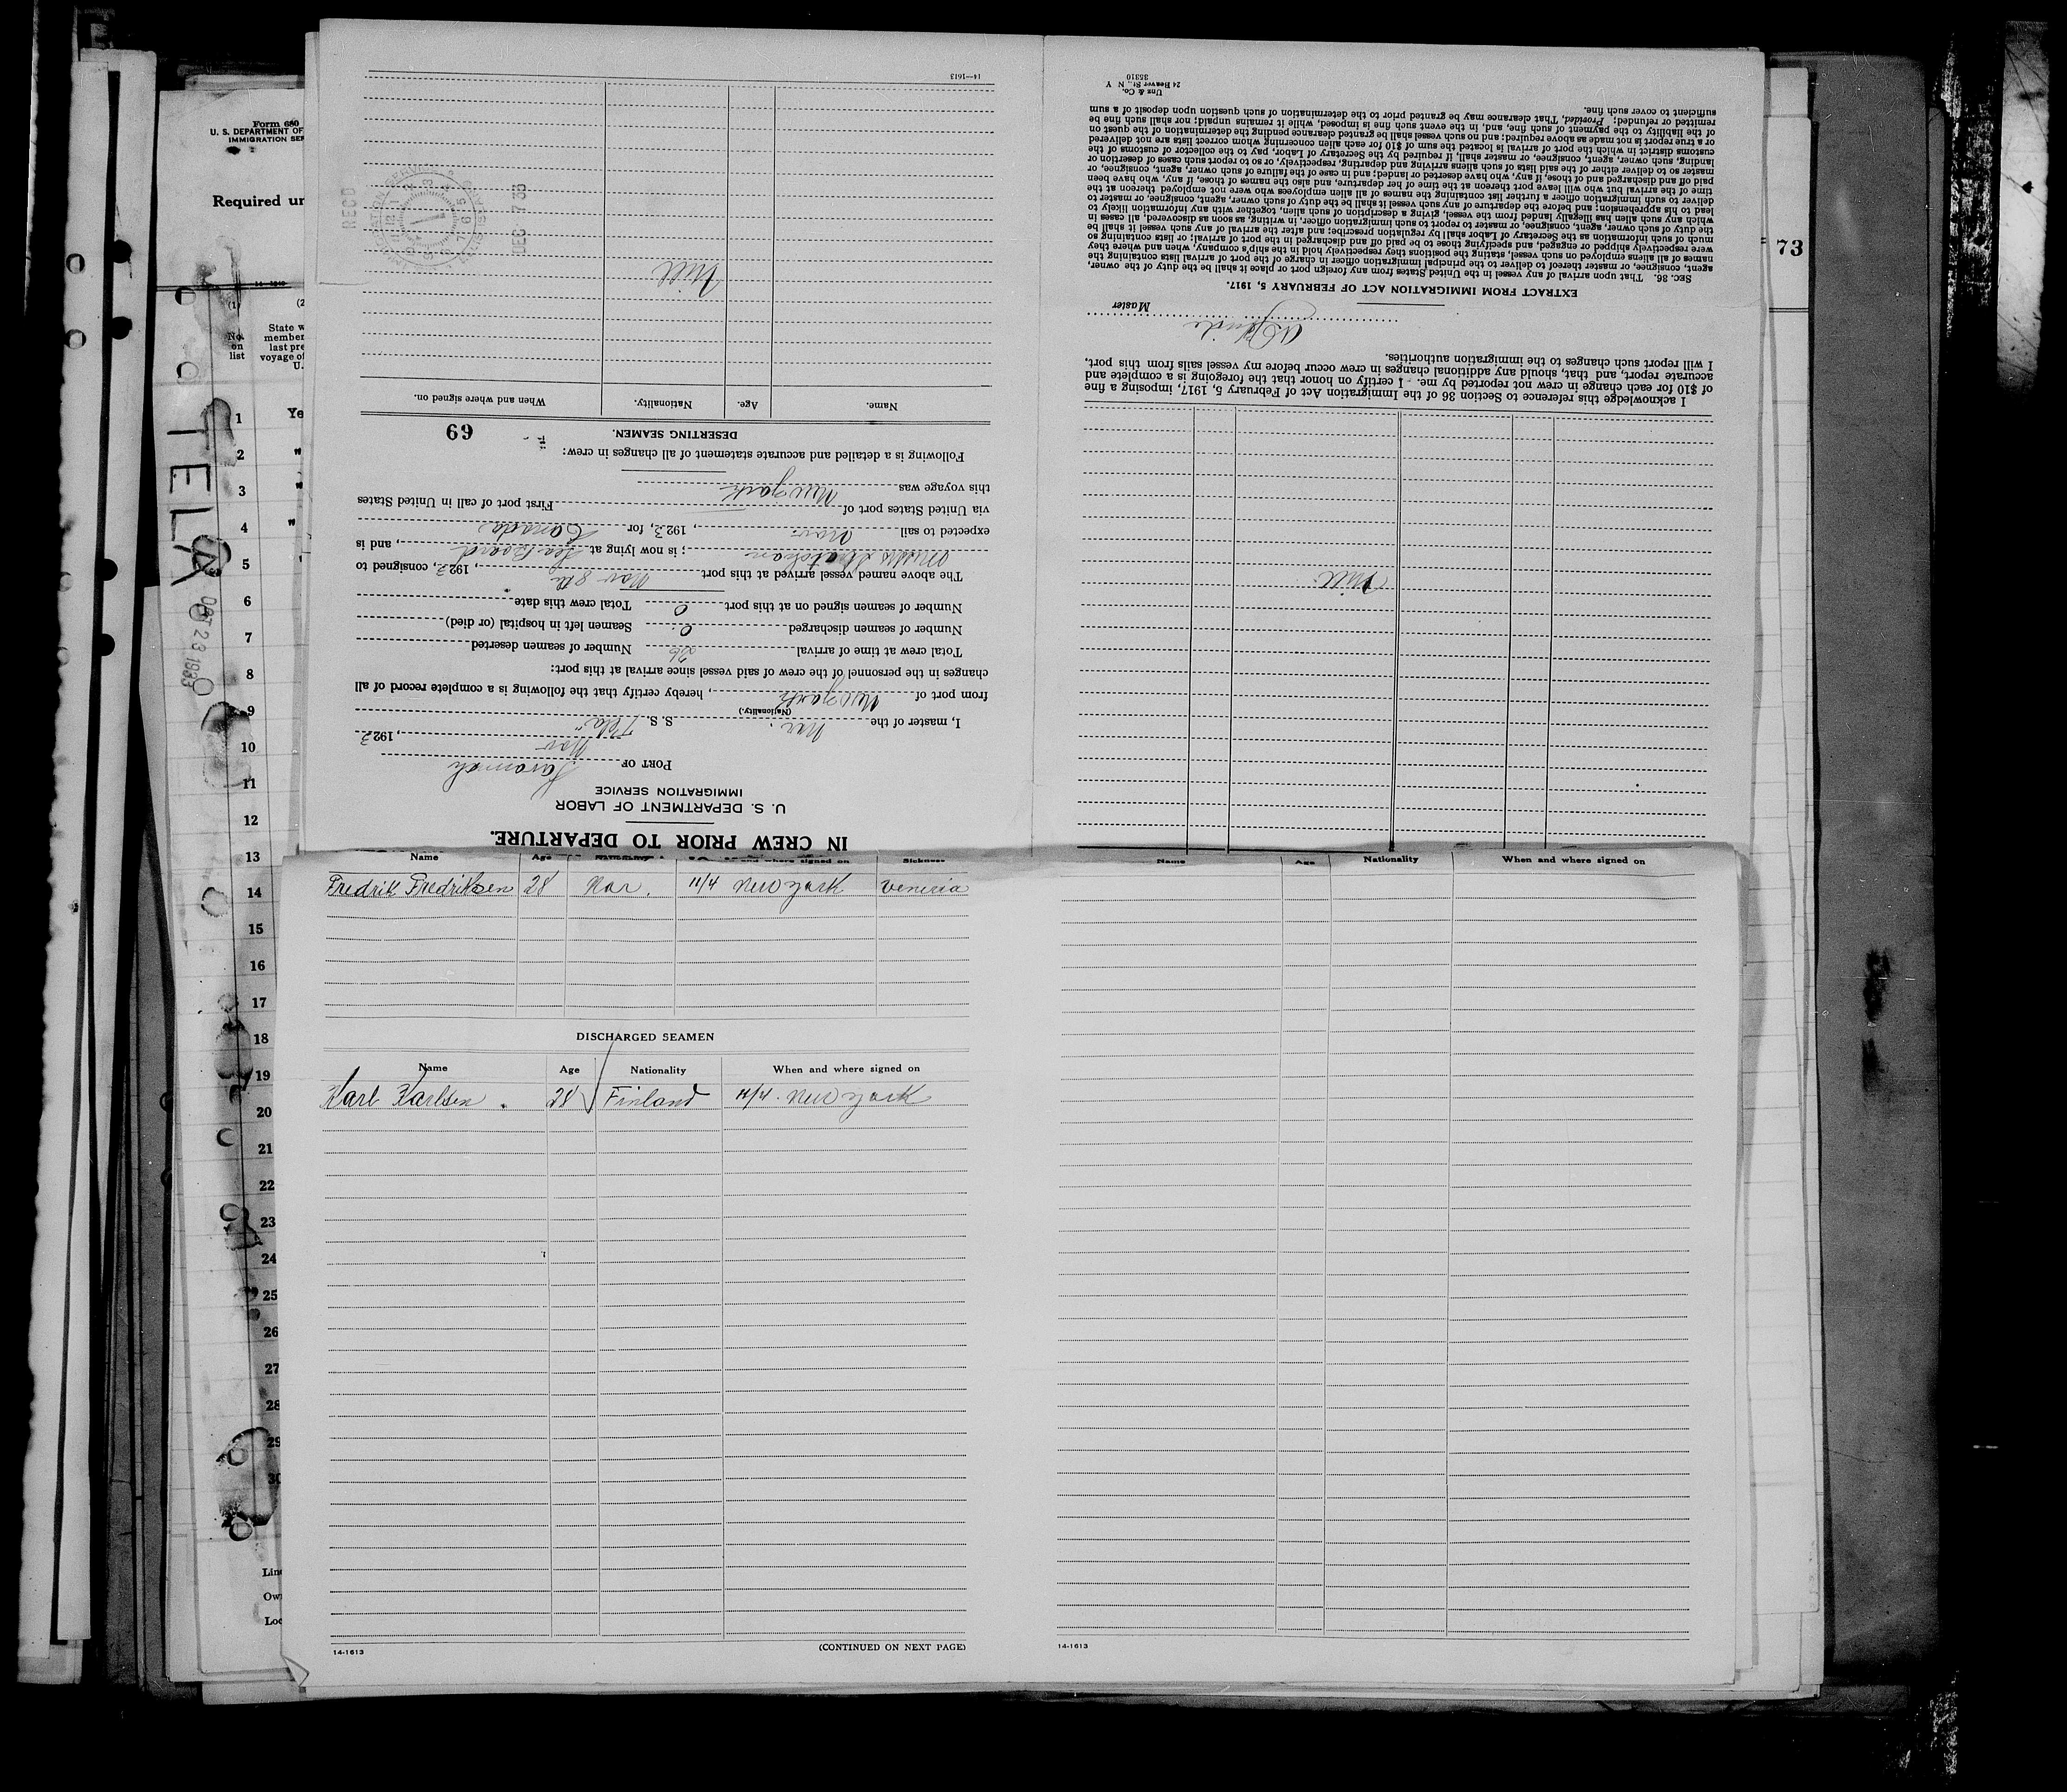 Form 680
U. S. DEPARTMENT OF
IMMIGRATION SER
Required un
(1)
(2
No.
on
list
State w
member
last pre
voyage of
U.
1 Ye
2 "
3 "
4 "
5
6
7
8
9
10
11
12
13
14
15
16
17
18
19
20
21
22
23
24
25
26
27
28
29
30
Lin
Ow
Loc
TELA
OCT 23 1933
73
IN CREW PRIOR TO DEPARTURE.
U. S. DEPARTMENT OF LABOR
IMMIGRATION SERVICE
PORT OF Savannah
Nov , 1923
I, master of the Nor. S. S. "Tela"
(Nationality.)
from port of New York, hereby certify that the following is a complete record of all
changes in the personnel of the crew of said vessel since arrival at this port:
Total crew at time of arrival 26 Number of seamen deserted
Number of seamen discharged 0. Seamen left in hospital (or died)
Number of seamen signed on at this port 0 Total crew this date
The above named vessel arrived at this port Nov 8th, 1923, consigned to
; is now lying at Sea Board, and is
expected to sail Nov, 1923, for Canada
via United States port of First port of call in United States
this voyage was New York
Following is a detailed and accurate statement of all changes in crew:
DESERTING SEAMEN.
69
Name. Age. Nationality. When and where signed on.
Nill
RECD
DEC 7 33
14—1613
Nill
I acknowledge this reference to Section 36 of the Immigration Act of February 5, 1917, imposing a fine
of $10 for each change in crew not reported by me. I certify on honor that the foregoing is a complete and
accurate report, and that, should any additional changes in crew occur before my vessel sails from this port,
I will report such changes to the immigration authorities.
Master
EXTRACT FROM IMMIGRATION ACT OF FEBRUARY 5, 1917.
SEC. 36. That upon arrival of any vessel in the United States from any foreign port or place it shall be the duty of the owner,
agent, consignee, or master thereof to deliver to the principal immigration officer in charge of the port of arrival lists containing the
names of all aliens employed on such vessel, stating the positions they respectively hold in the ship's company, when and where they
were respectively shipped or engaged, and specifying those to be paid off and discharged in the port of arrival; or lists containing so
much of such information as the Secretary of Labor shall by regulation prescribe; and after the arrival of any such vessel it shall be
the duty of such owner, agent, consignee, or master to report to such immigration officer, in writing, as soon as discovered, all cases in
which any such alien has illegally landed from the vessel, giving a description of such alien, together with any information likely to
lead to his apprehension; and before the departure of any such vessel it shall be the duty of such owner, agent, consignee, or master to
deliver to such immigration officer a further list containing the names of all alien employees who were not employed thereon at the
time of the arrival but who will leave port thereon at the time of her departure, and also the names of those, if any, who have been
paid off and discharged and of those, if any, who have deserted or landed; and in case of the failure of such owner, agent, consignee, or
master so to deliver either of the said lists of such aliens arriving and departing, respectively, or so to report such cases of desertion or
landing, such owner, agent, consignee, or master shall, if required by the Secretary of Labor, pay to the collector of customs of the
customs district in which the port of arrival is located the sum of $10 for each alien concerning whom correct lists are not delivered
or a true report is not made as above required; and no such vessel shall be granted clearance pending the determination of the quest on
of the liability to the payment of such fine, and, in the event such fine is imposed, while it remains unpaid; nor shall such fine be
remitted or refunded: Provided, That clearance may be granted prior to the determination of such question upon deposit of a sum
sufficient to cover such fine.
Unz & Co.
24 Beaver St., N Y
35310
Name Age Nationality When and where signed on Sickness
Fredrik Fredriksen 28 Nor. 11/4 New York veneria
DISCHARGED SEAMEN
Name Age Nationality When and where signed on
Karl Karlsen. 28 Finland 11/4. New York
14-1613
(CONTINUED ON NEXT PAGE)
Name Age Nationality When and where signed on
14-1613